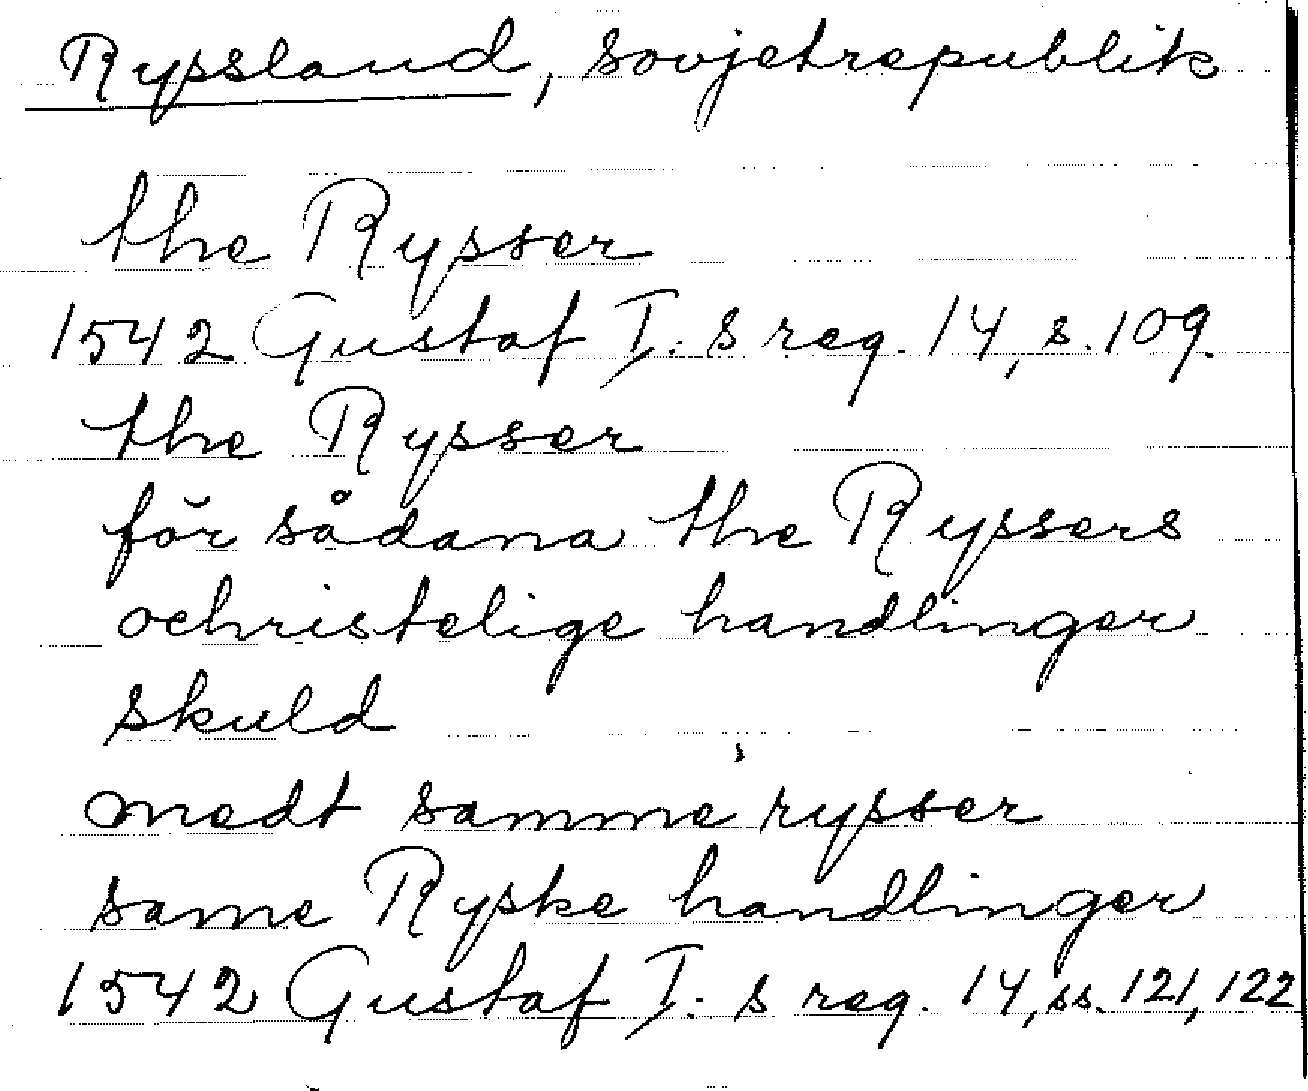 Ryssland, sovjetrepublik
the Rysser
1542 Gustaf I:s reg. 14, s. 109.
the Rysser
för sådana the Ryssers
ochristelige handlinger
skuld
medt samme rysser
same Ryske handlinger
1542 Gustaf I:s reg. 14, ss. 121, 122